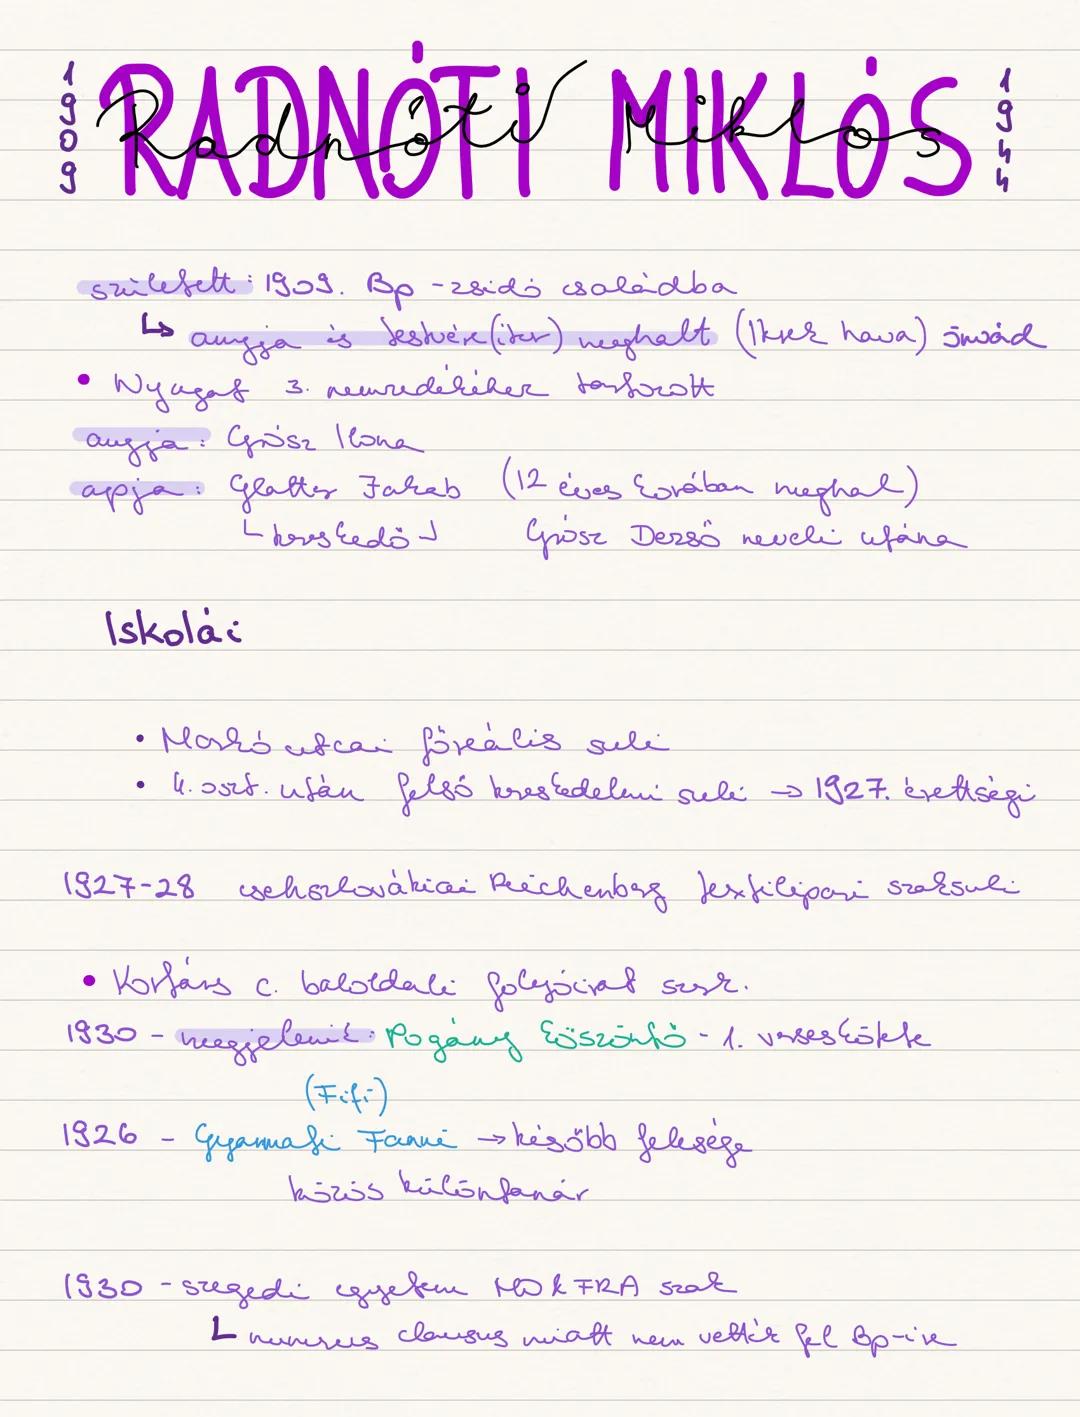 1909 RADNÓTI MIKLÓS 1944
Radnóti Miklós
született: 1909. Bp - zsidó családba
↳ anyja és testvére (iker) meghalt (Ikrek hava) önvád
• Nyugat 3. nemzedékéhez tartozott
anyja: Grósz Ilona
apja: Glatter Jakab (12 éves korában meghal)
kereskedő Grósz Dezső neveli utána
Iskolái
• Markó utcai főreális suli
• 4. oszt. után felső kereskedelmi suli → 1927. érettségi
1927-28 csehszlovákiai Reichenberg textilipari szaksuli
• Kortárs c. baloldali folyóirat szerk.
1930 - megjelenik: Pogány köszöntő - 1. verseskötete
(Fifi)
1926 - Gyarmati Fanni → később felesége
közös különtanár
1930 - szegedi egyetem MO & FRA szak
numerus clausus miatt nem vették fel Bp-ire